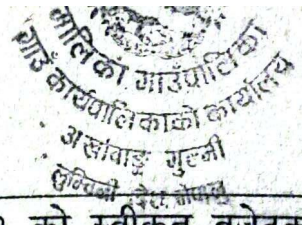 मालिका गाउँपालिका
गाउँ कार्यपालिकाको कार्यालय
अर्खावाङ्ग गुल्मी
लुम्बिनी प्रदेश, नेपाल
को स्वीकृत